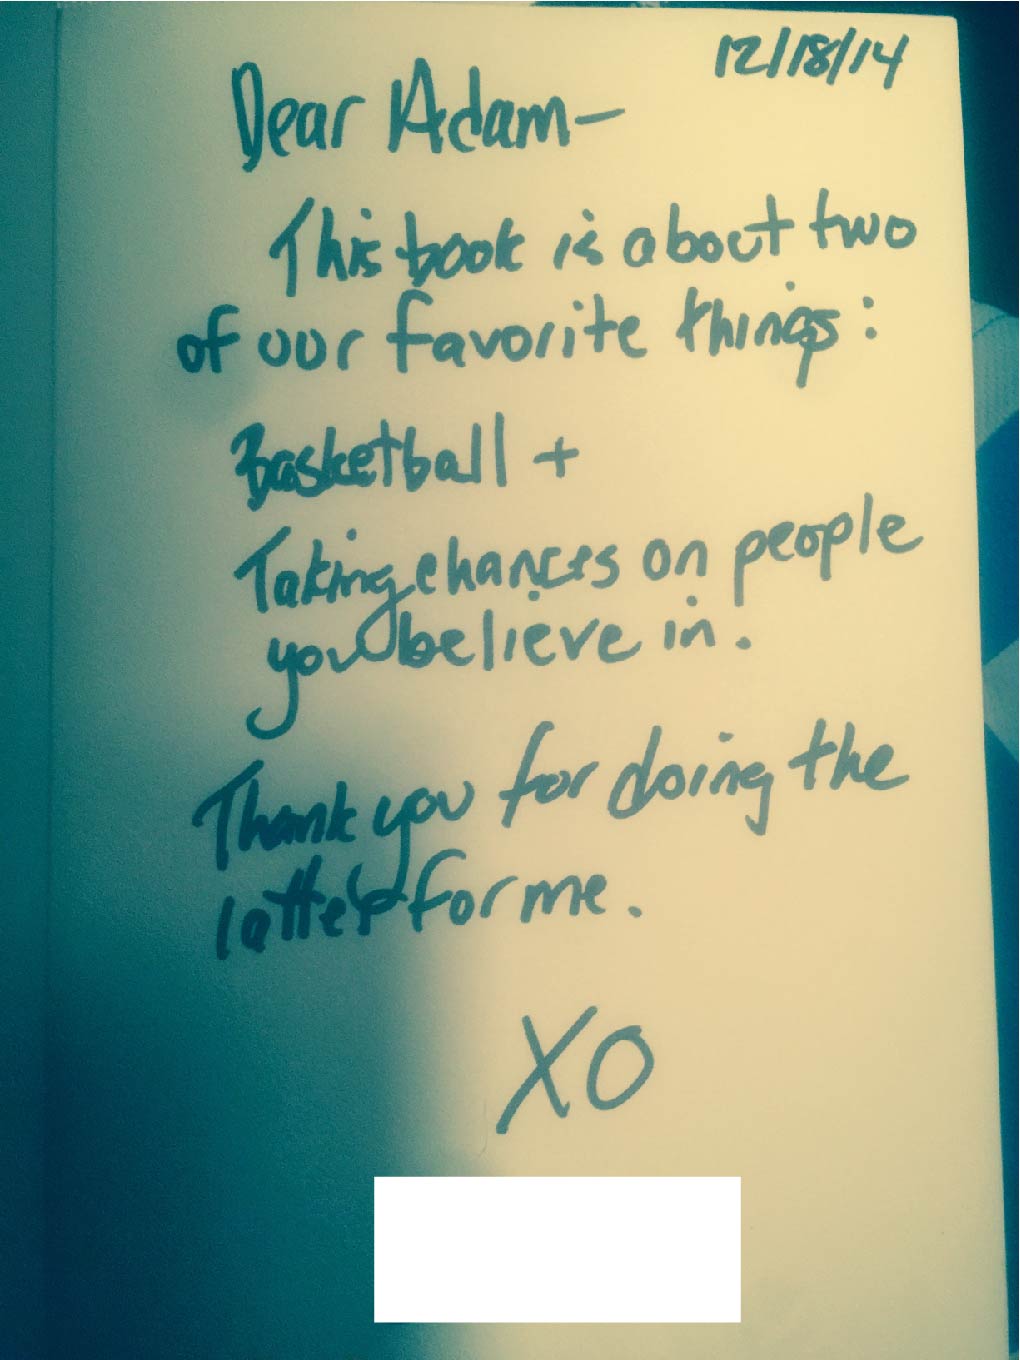 12/18/14
Dear Adam—
This book is about two
of our favorite things:
Basketball +
Taking chances on people
you believe in.
Thank you for doing the
latter for me.
XO